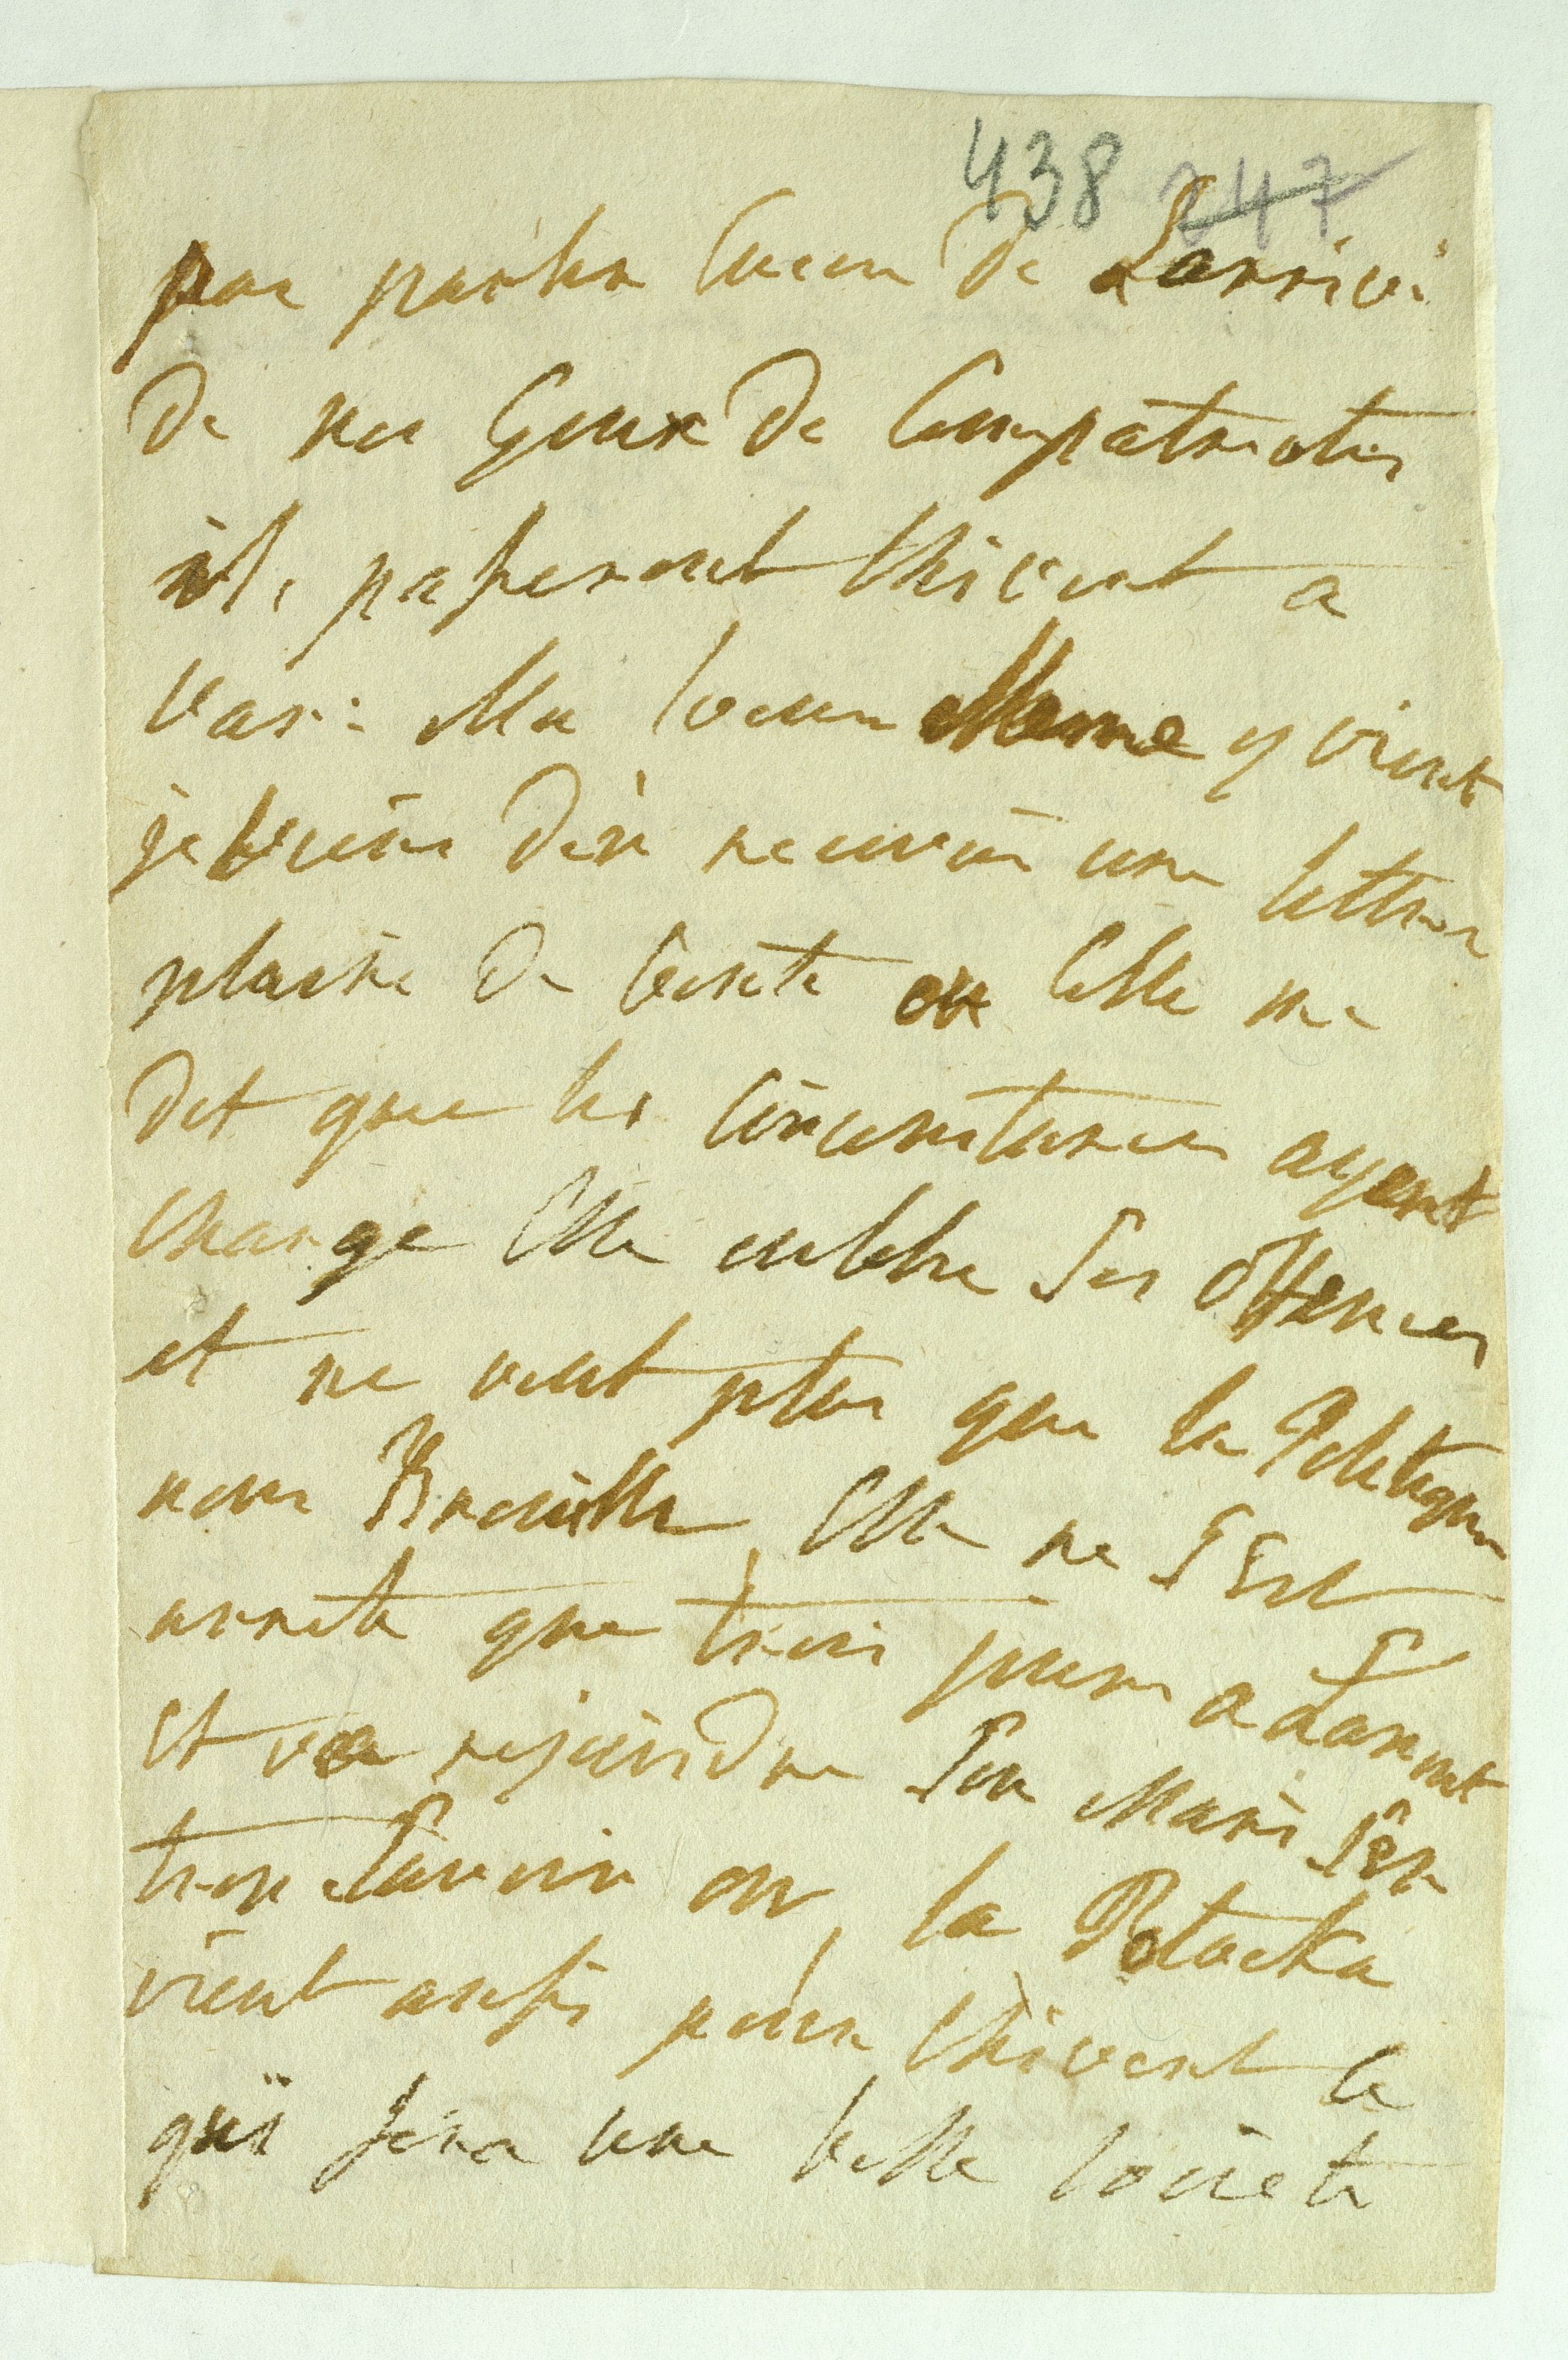 438 247
pas parler encor de Larrivé
de nos Geux de Compatriotes
ils passeront Lhivert a
vars: Ma soeur Meme y vient
je viens den recevoir une lettre
plaine de bonté ou Celle me
dit que les Circonstances ayent
change Elle oublie ses offences
et ne veut plus que la Politique
nous Brouille Elle ne sest
arreta que trois jours a Lanout
et va rejoindre son Mari san
trop savoir ou, la Potocka
vient aussi pour Lhivert Ce
qui fera une belle Societe